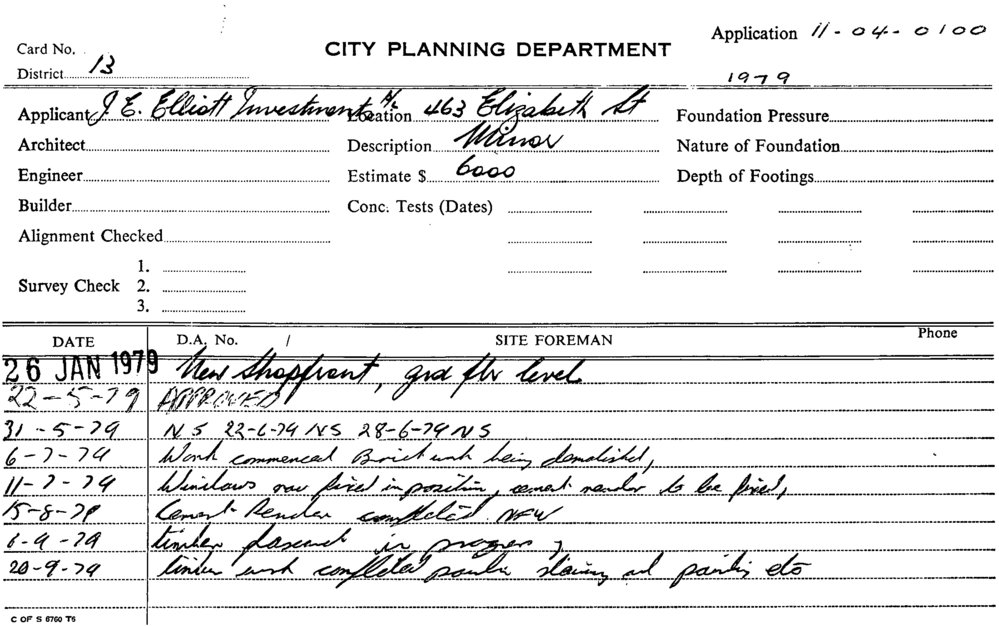 Application 11-04-0100
Card No.
CITY PLANNING DEPARTMENT
District 13
1979
Applicant J. E. Elliott Investments Location 463 Elizabeth St Foundation Pressure
Architect Description Minor Nature of Foundation
Engineer Estimate $ 6000 Depth of Footings
Builder Conc. Tests (Dates)
Alignment Checked
1.
Survey Check 2.
3.
DATE D.A. No. / SITE FOREMAN Phone
26 JAN 1979 New Shopfront, grd flr level
22-5-79 APPROVED
31-5-79 NS 22-6-79 NS 28-6-79 NS
6-7-79 Work commenced Brick work being demolished,
11-7-79 Windows now fixed in position, cement render to be fixed,
15-8-79 Cement Render completed. NFW
6-9-79 timber in progress
20-9-79 timber work completed staining and painting etc
C OF S 6760 T6